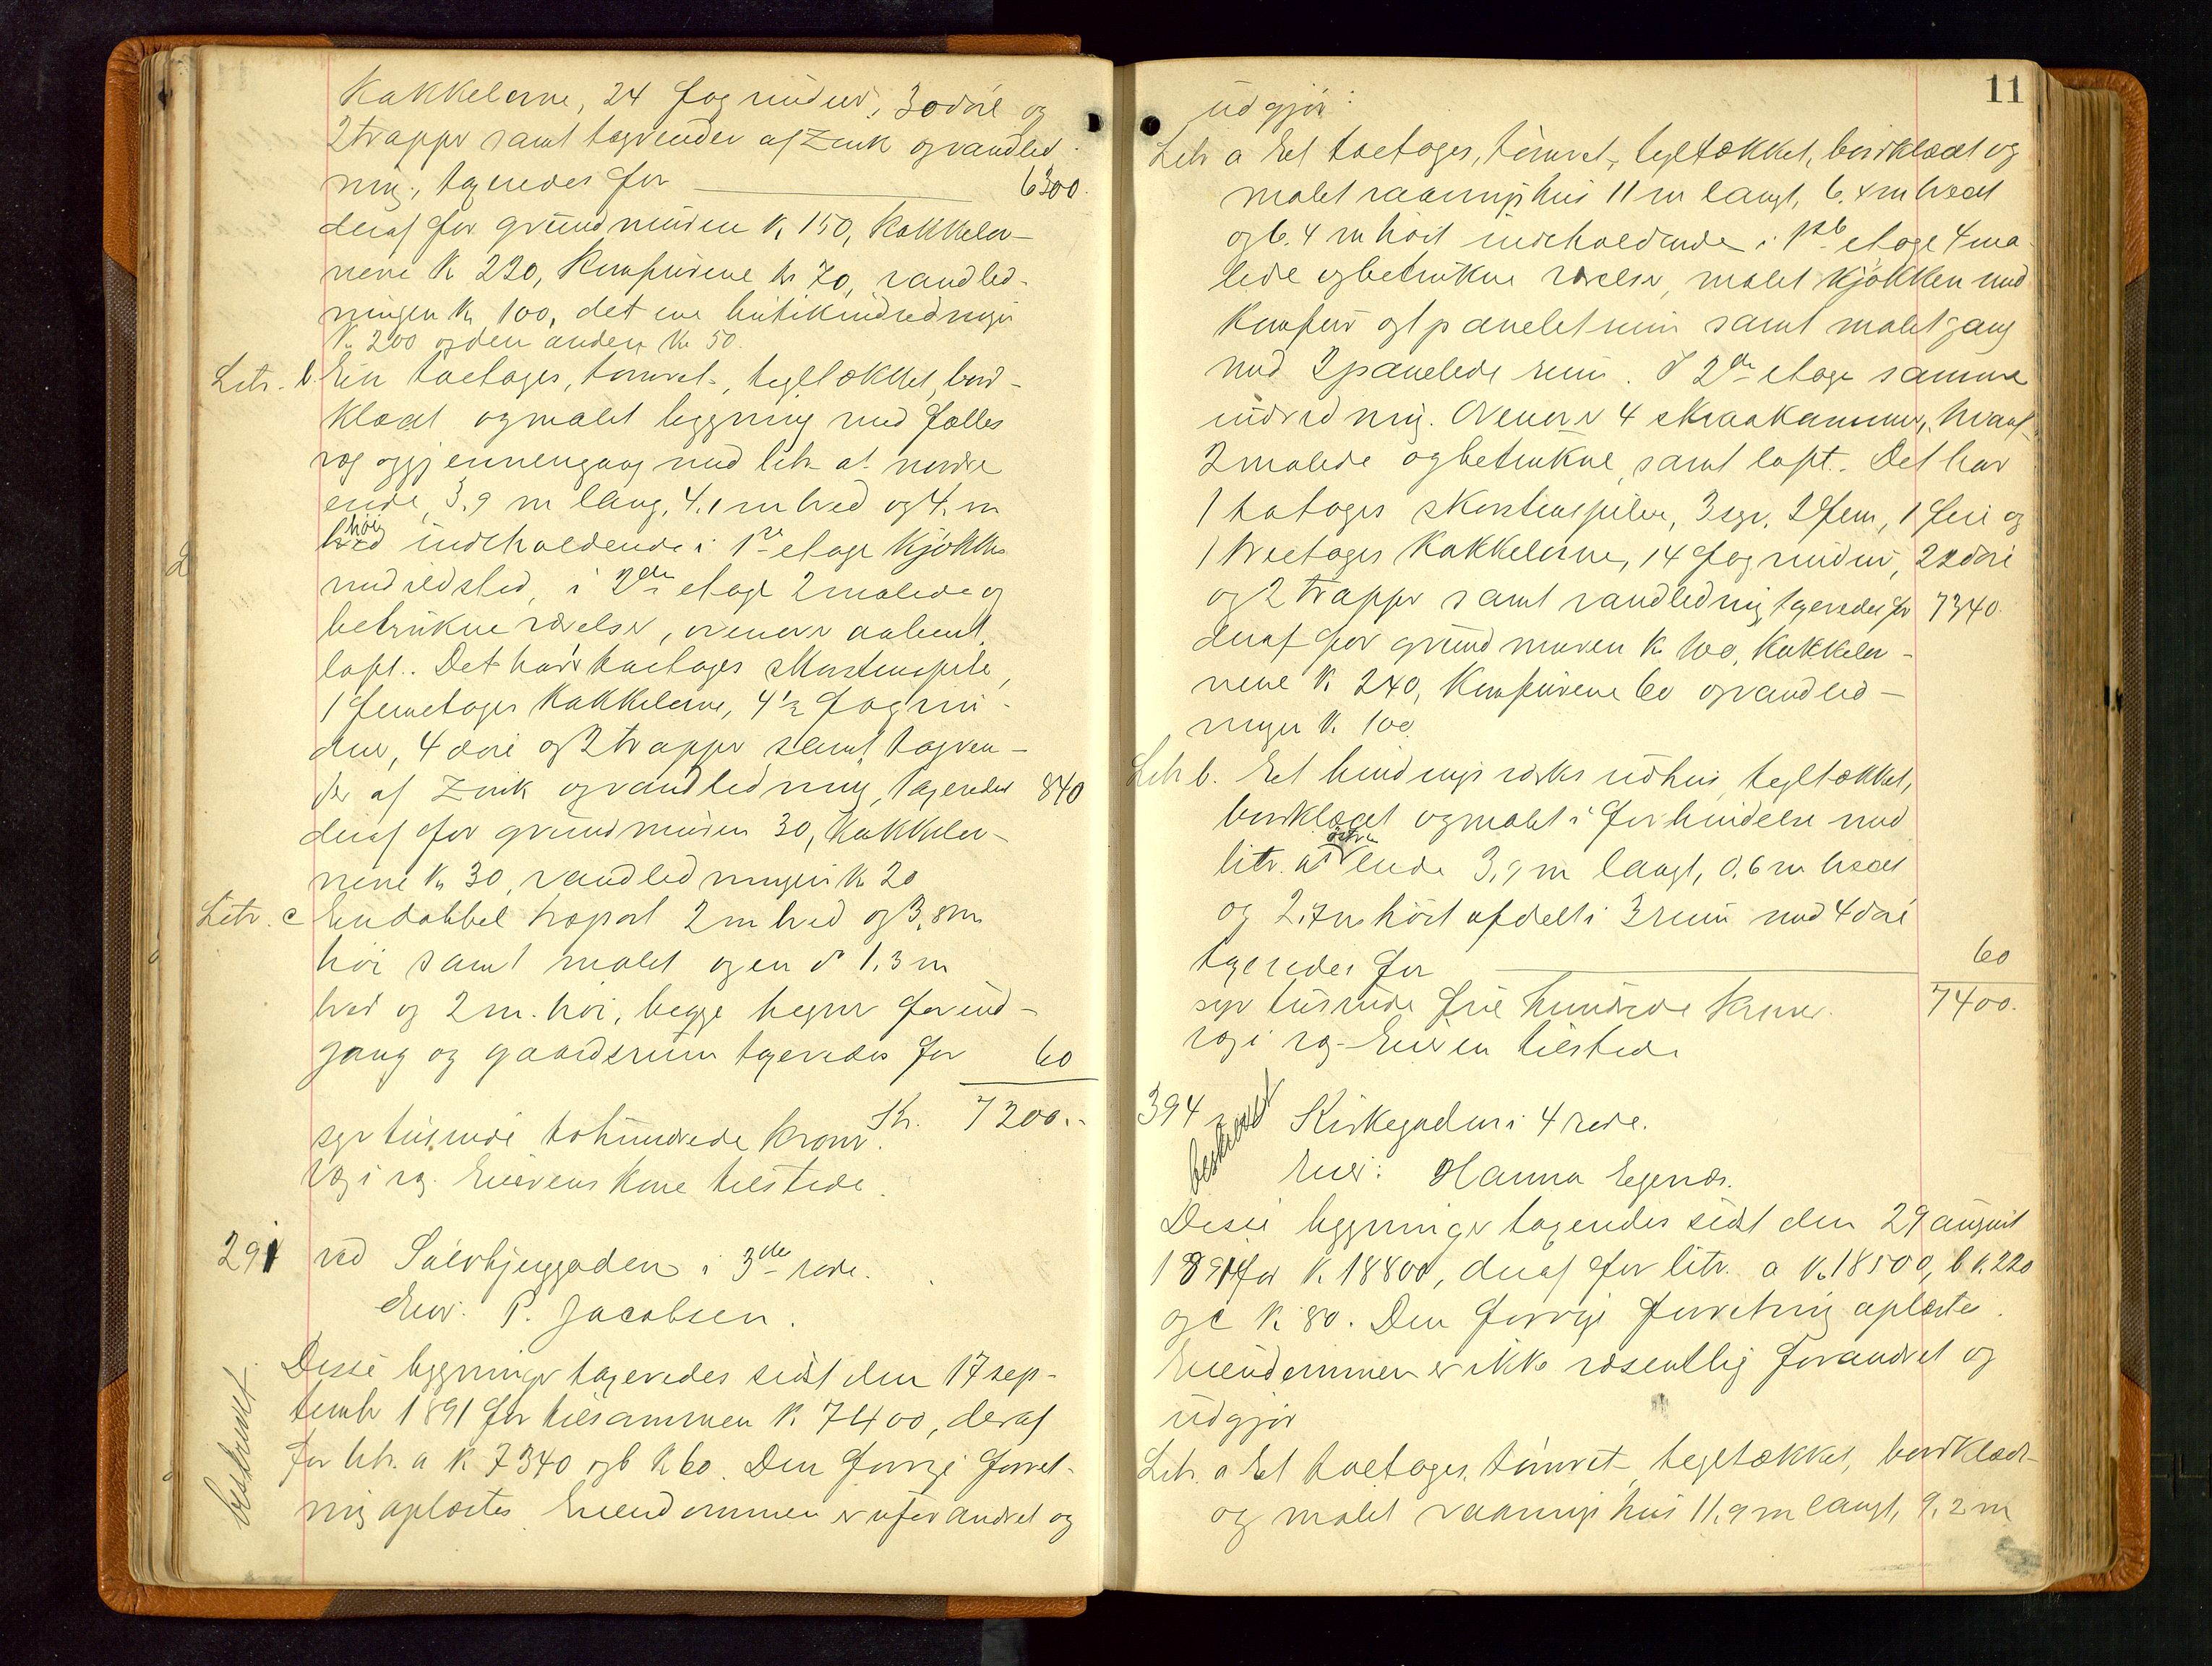 Kakkelovne, 24 fag vinduer, 30 døre og
2 trapper samt tagrender af zink og vandled-
ning, taxeredes for 6300.
deraf for grundmuren K. 150, kakkelov-
nene K 220, komfurene kr 70, vandled-
ningen kr 100, det ene butikindredning
K. 200 og den anden kr 50.
Litr. b. Een toetages, tømret, tegltækket, bord-
klædt og malet bygning med fælles
væg og gjennemgang med litr a's nordre
ende, 3,9 m lang, 4,1 m bred og 4, m
høi
bred indeholdende i 1ste etage kjøkken
med ildsted, i 2den etage 2 malede og
betrukne værelser, ovenover aabent
loft. Det har 1 toetages skorstenspibe,
1 femetages kakkelovne, 4½ fag vin-
duer, 4 døre og 2 trapper samt tagren-
der af zink og vandledning, taxeredes 840
deraf for grundmuren 30, kakkelov-
nene kr 30, vandledningen kr 20
Litr. c En dobbel træport 2 m bred og 3,8 m
høi samt malet og en do 1,3 m
bred og 2 m. høi, begge hegner for ind-
gang og gaardsrum taxeredes for 60
Kr. 7200.-
syv tusinde tohundrede kroner.
væg i væg. Eierens kone tilstede.
291 ved Sølvbjerggaden i 3de rode.
Eier: P. Jacobsen.
Disse bygninger taxeredes sidst den 17 sep-
beskrevet
tember 1891 for tilsammen K. 7400, deraf
for litr. a K 7340 og b K 60. Den forrige forret-
ning oplæstes. Eiendommen er uforandret og
11
udgjør:
Litr a Et toetages, tømret, tegltækket, bordklædt og
malet vaaningshus 11 m langt, 6,4 m bredt
og 6,4 m høit indeholdende i 1ste etage 4 ma-
lede og betrukne værelser, malet kjøkken med
komfur og 1 panelet rum samt malet gang
med 2 panelede rum. I 2den etage samme
indredning. Ovenover 4 skraakammer, hvoraf
2 malede og betrukne, samt loft. Det har
1 totages skorstenspibe, 3 syv, 2 fem, 1 fire og
1 treetages kakkelovne, 14 fag vinduer, 22 døre
og 2 trapper samt vandledning taxeredes for 7340.
deraf for grundmuren K. 100, kakkelov-
nene K. 240, komfurene 60 og vandled-
ningen K. 100.
Litr b. Et bindingsværks udhus, tegltækket,
bordklædt og malet i forbindelse med
østre
litr. a's ende 3,9 m langt, 0,6 m bredt
og 2,7 m høit afdelt i 3 rum med 4 døre
taxeredes for 60
7400.
syv tusinde fire hundrede kroner.
væg i væg. Eieren tilstede
394 Kirkegaden i 4 rode.
beskrevet
Eier: Hanna Egenæs.
Disse bygninger taxeredes sidst den 29 august
1891 for K. 18800, deraf for litr. a K. 18500, b K. 220
og c K. 80. Den forrige forretning oplæstes.
Eiendommen er ikke væsentlig forandret og
udgjør
Litr. a Et toetages, tømret, tegltækket, bordklædt
og malet vaaningshus 11,9 m langt, 9,2 m